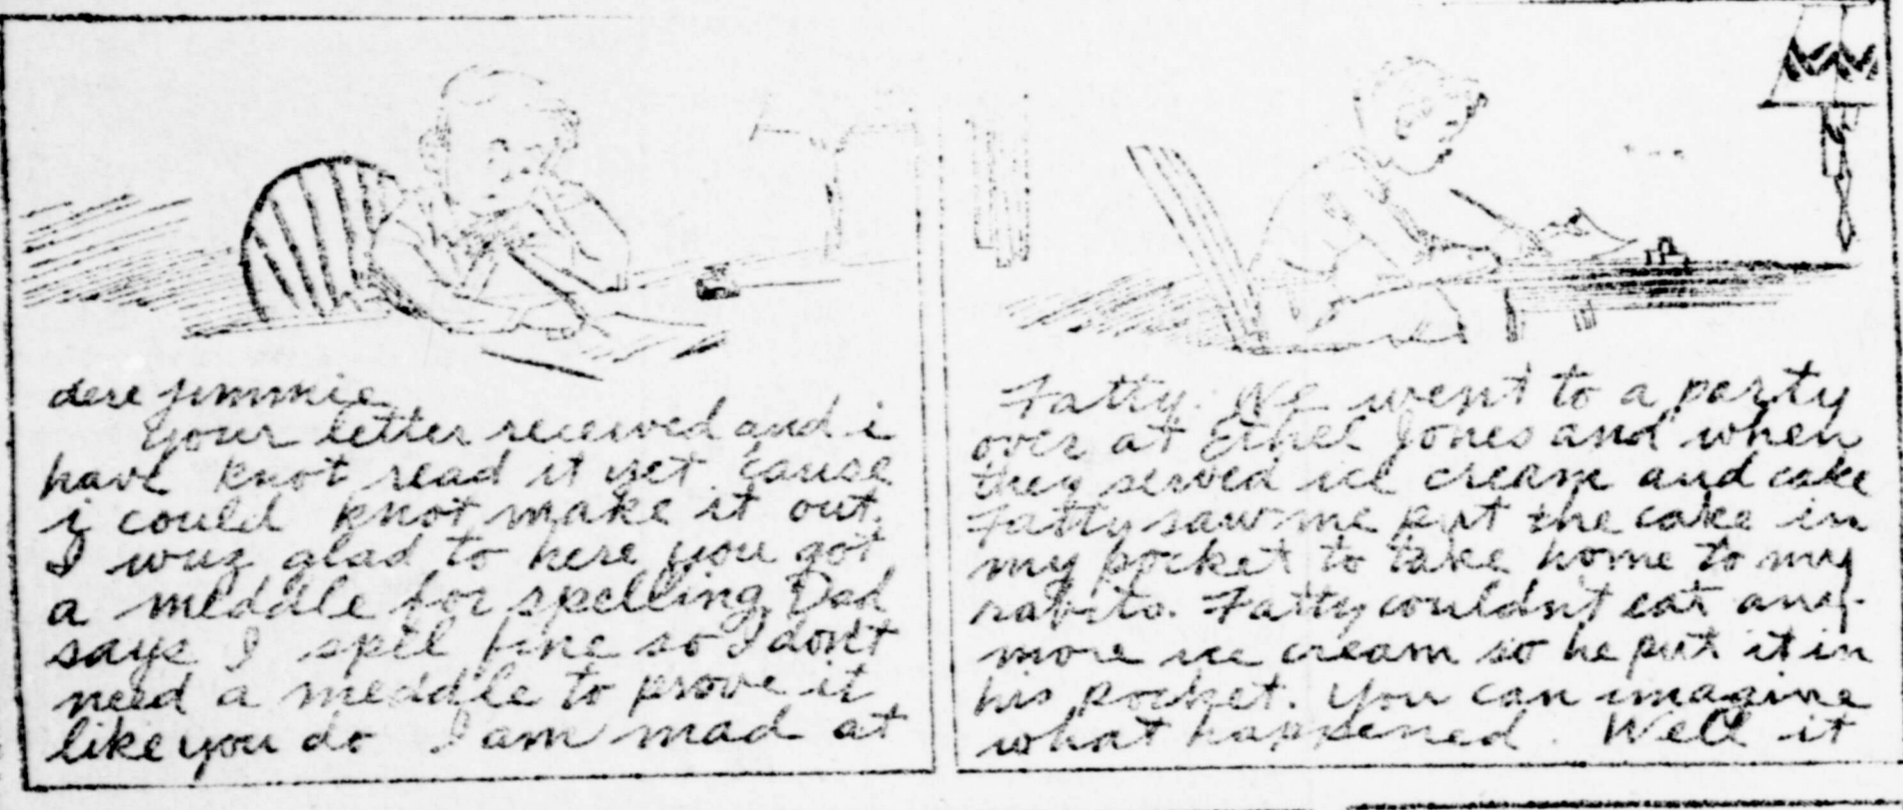 dere jimmie
your letter received and i
have knot read it yet cause
i could knot make it out.
I wuz glad to here you got
a meddle for spelling. Dad
says I spel fine so I don't
need a meddle to prove it
like you do I am mad at
Fatty. We went to a party
over at Ethel Jones and when
they served ice cream and cake
Fatty saw me put the cake in
my pocket to take home to my
rabits. Fatty couldn't eat any-
more ice cream so he put it in
his pocket. You can imagine
what happened. Well it